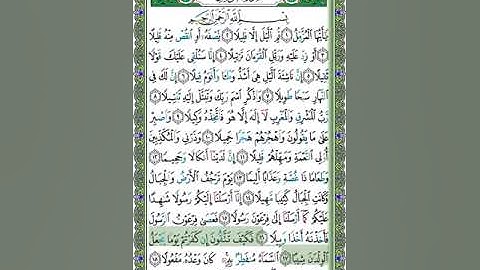 بِسْمِ اللَّهِ الرَّحْمَٰنِ الرَّحِيمِ
يَا أَيُّهَا الْمُزَّمِّلُ ۝١ قُمِ اللَّيْلَ إِلَّا قَلِيلًا ۝٢ نِصْفَهُ أَوِ انْقُصْ مِنْهُ قَلِيلًا
۝٣ أَوْ زِدْ عَلَيْهِ وَرَتِّلِ الْقُرْآنَ تَرْتِيلًا ۝٤ إِنَّا سَنُلْقِي عَلَيْكَ قَوْلًا
ثَقِيلًا ۝٥ إِنَّ نَاشِئَةَ اللَّيْلِ هِيَ أَشَدُّ وَطْئًا وَأَقْوَمُ قِيلًا ۝٦ إِنَّ لَكَ فِي
النَّهَارِ سَبْحًا طَوِيلًا ۝٧ وَاذْكُرِ اسْمَ رَبِّكَ وَتَبَتَّلْ إِلَيْهِ تَبْتِيلًا ۝٨
رَبُّ الْمَشْرِقِ وَالْمَغْرِبِ لَا إِلَٰهَ إِلَّا هُوَ فَاتَّخِذْهُ وَكِيلًا ۝٩ وَاصْبِرْ
عَلَىٰ مَا يَقُولُونَ وَاهْجُرْهُمْ هَجْرًا جَمِيلًا ۝١٠ وَذَرْنِي وَالْمُكَذِّبِينَ
أُولِي النَّعْمَةِ وَمَهِّلْهُمْ قَلِيلًا ۝١١ إِنَّ لَدَيْنَا أَنْكَالًا وَجَحِيمًا ۝١٢
وَطَعَامًا ذَا غُصَّةٍ وَعَذَابًا أَلِيمًا ۝١٣ يَوْمَ تَرْجُفُ الْأَرْضُ وَالْجِبَالُ
وَكَانَتِ الْجِبَالُ كَثِيبًا مَهِيلًا ۝١٤ إِنَّا أَرْسَلْنَا إِلَيْكُمْ رَسُولًا شَاهِدًا
عَلَيْكُمْ كَمَا أَرْسَلْنَا إِلَىٰ فِرْعَوْنَ رَسُولًا ۝١٥ فَعَصَىٰ فِرْعَوْنُ الرَّسُولَ
فَأَخَذْنَاهُ أَخْذًا وَبِيلًا ۝١٦ فَكَيْفَ تَتَّقُونَ إِنْ كَفَرْتُمْ يَوْمًا يَجْعَلُ
الْوِلْدَانَ شِيبًا ۝١٧ السَّمَاءُ مُنْفَطِرٌ بِهِ كَانَ وَعْدُهُ مَفْعُولًا ۝١٨